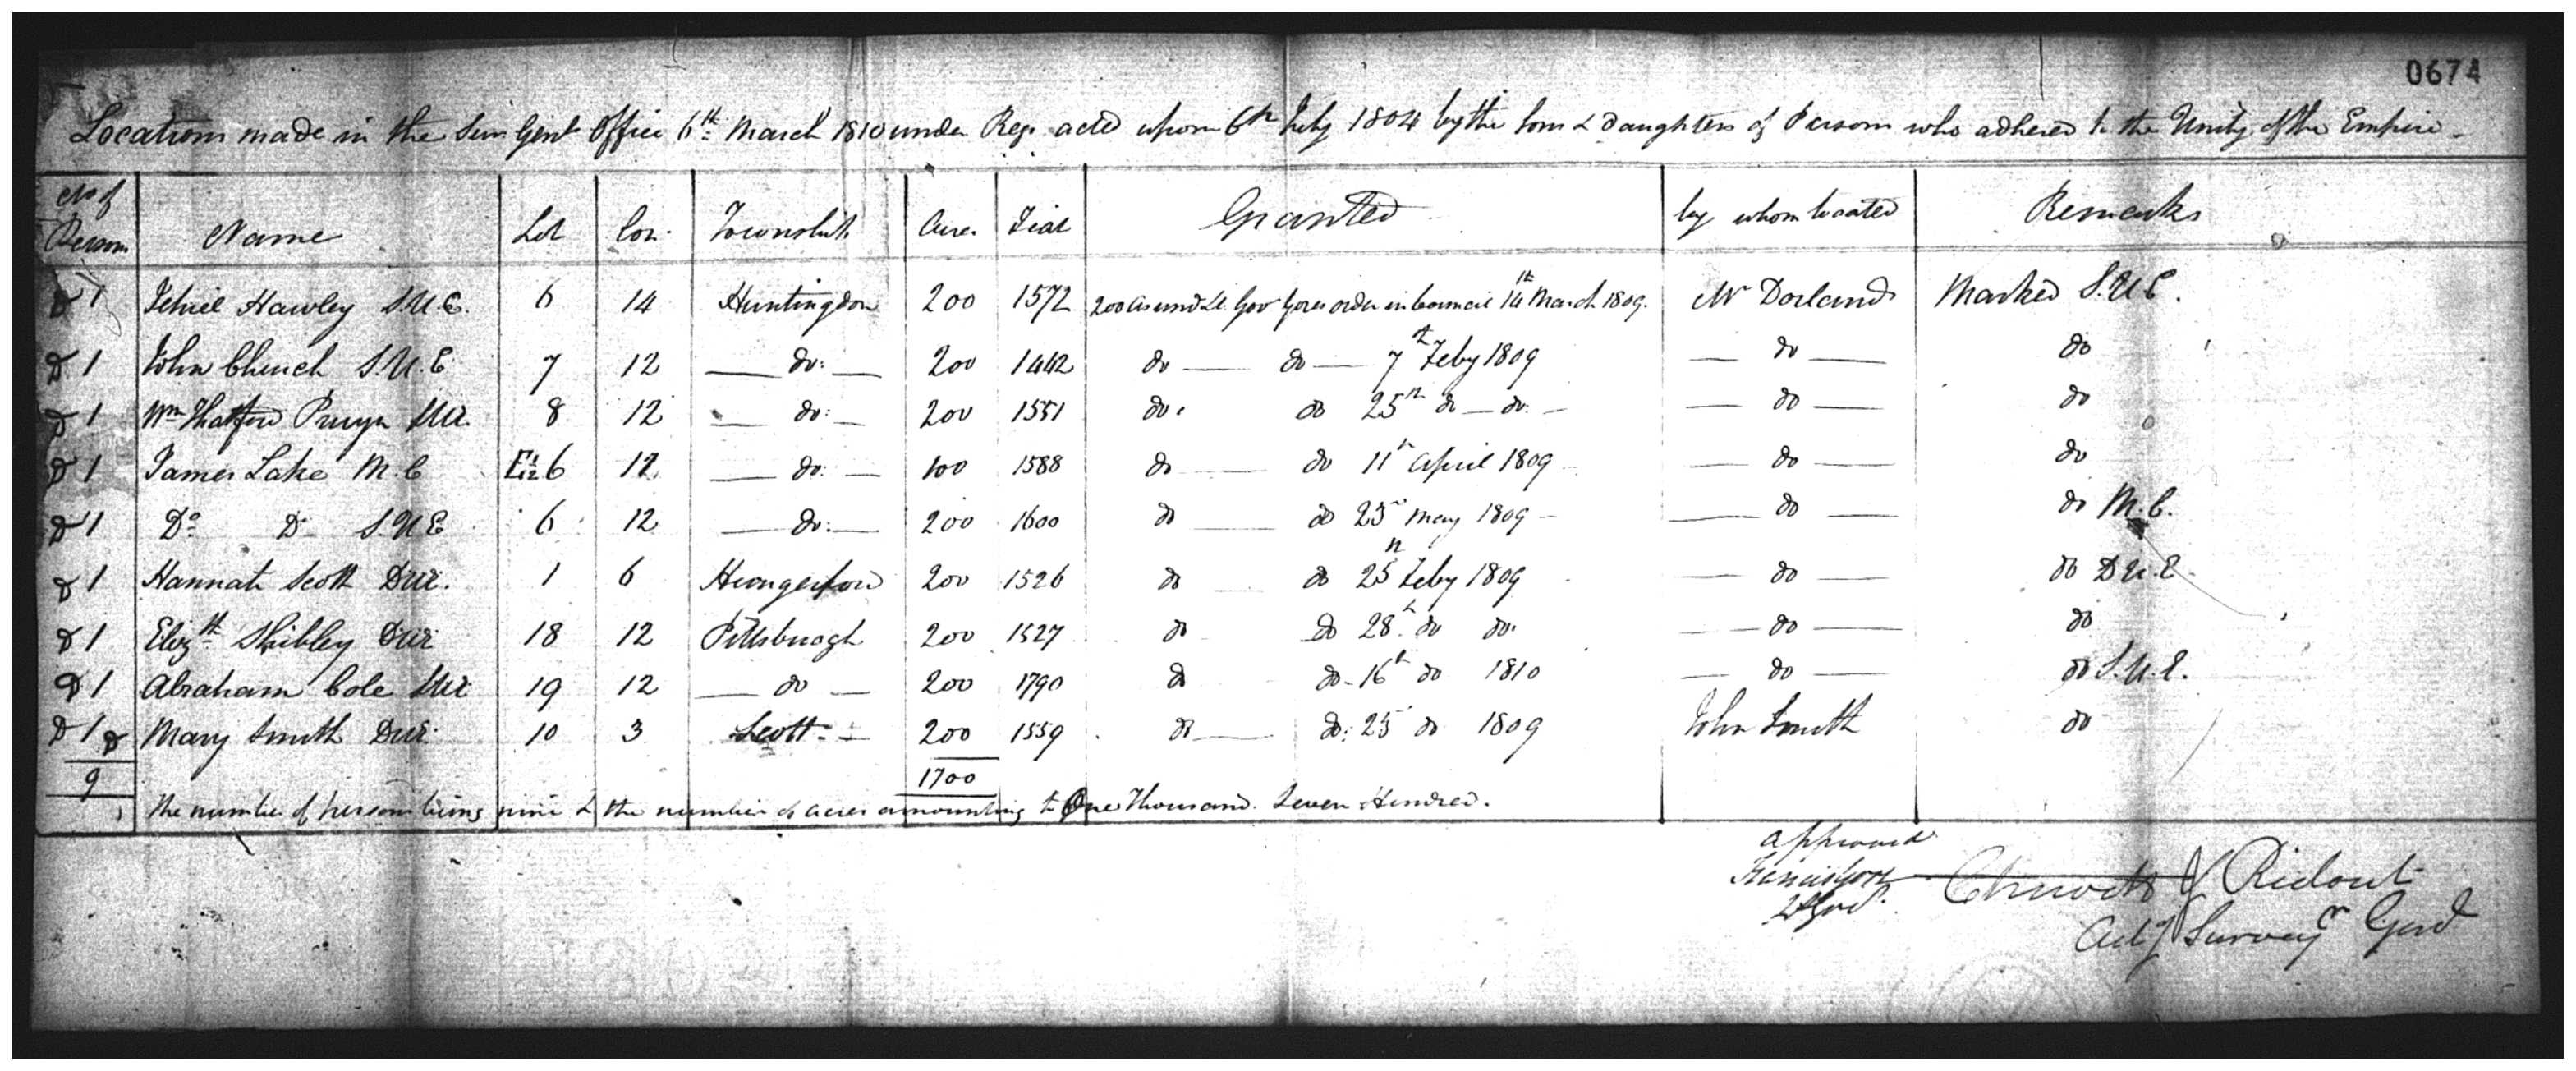 0674
Locations made in the Surv Genl Office 6th March 1810 under Reg. acted upon 6th July 1804 by the Sons & Daughters of Persons who adhered to the Unity of the Empire
No of Persons Name Lot Con. Township Acres Fiat Granted by whom located Remarks
1 Jehiel Hawley S.U.E. 6 14 Huntingdon 200 1572 200 as und Lt. Gov Gores order in Council 14th March 1809. Mr Dorland Marked S.U.E.
1 John Church S.U.E 7 12 do: 200 1442 do do 7th Feby 1809 do do
1 Wm Pruyn SUE. 8 12 do: 200 1551 do. do 25th do do. do do
1 James Lake M.C E1/2 6 12 do: 100 1588 do do 11th April 1809 do do
1 Do Do S.U.E 6 12 do: 200 1600 do do 23d May 1809 do do M.C.
1 Hannah Scott DUE. 1 6 Hungerford 200 1526 do do 25th Feby 1809 do do D.U.E.
1 Elizth Shibley DUE 18 12 Pittsburgh 200 1527 do do 28th do do. do do
1 Abraham Cole SUE 19 12 do 200 1790 do do 16th do 1810 do do S.U.E.
1 Mary Smith DUE 10 3 Scott 200 1559 do do: 25 do 1809 John Smith do
9 1700
the number of persons being nine & the number of acres amounting to One Thousand Seven Hundred.
approved
Francis Gore
Lt Govr.
Ridout
Actg Surveyr Genl